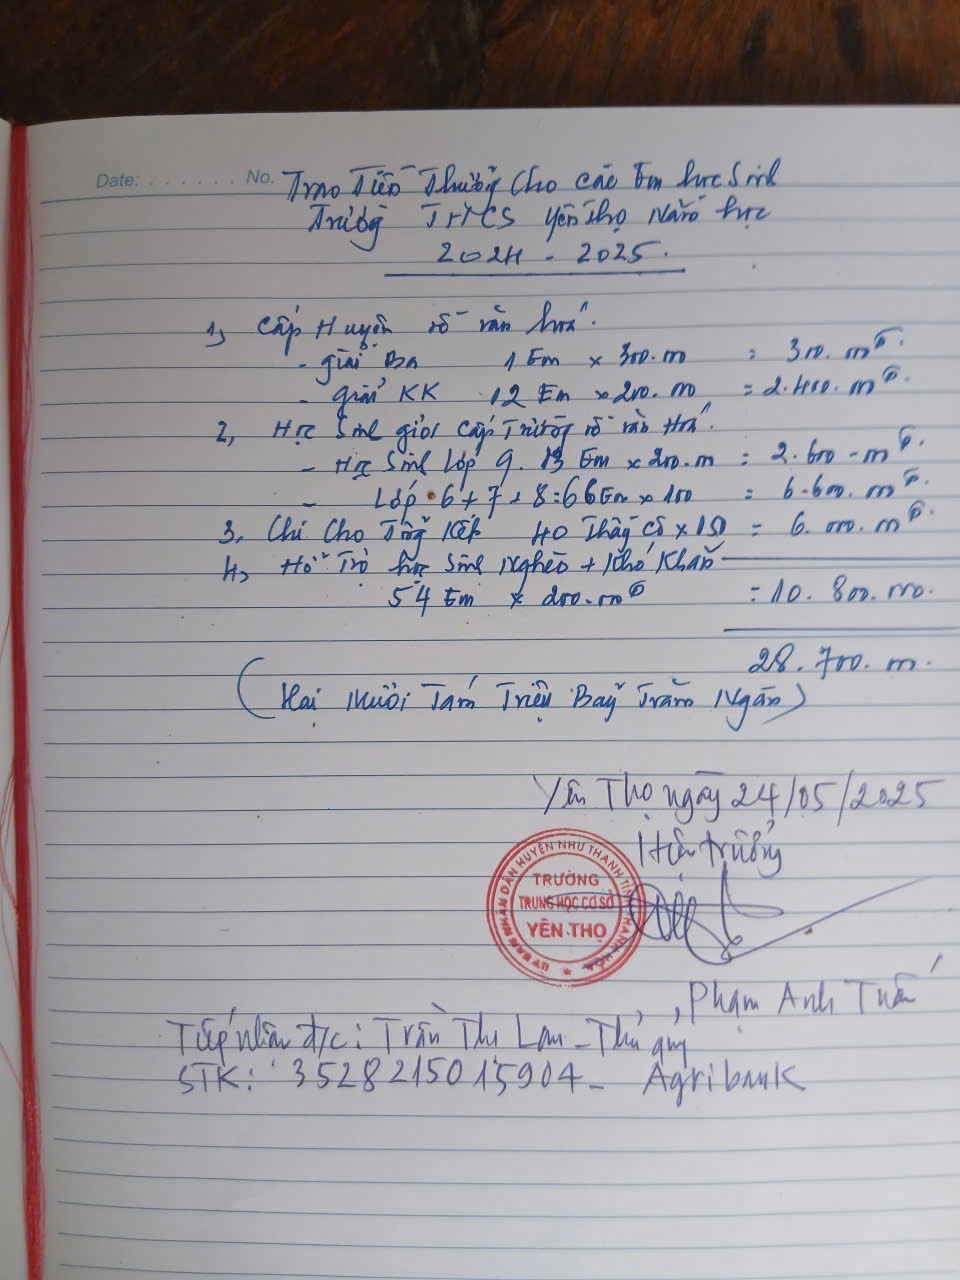 Date: . . . . . . No.
Trao Tiền Thưởng Cho các Em học Sinh
Trường THCS Yên Thọ Năm học
2024 - 2025.
1, Cấp Huyện về văn hoá.
- giải Ba 1 Em x 300.000 = 300.000đ.
- giải KK 12 Em x 200.000 = 2.400.000đ.
2, Học Sinh giỏi Cấp Trường về văn Hoá.
- Học Sinh Lớp 9. 13 Em x 200.000 = 2.600.000đ.
- Lớp 6 + 7 + 8 = 66 Em x 100 = 6.600.000đ.
3, Chi Cho Tổng Kết 40 Thầy Cô x 150 = 6.000.000đ.
4, Hỗ Trợ học Sinh Nghèo + Khó Khăn
54 Em x 200.000đ = 10.800.000.
28.700.000.
(Hai Mươi Tám Triệu Bảy Trăm Ngàn)
Yên Thọ ngày 24/05/2025
Hiệu trưởng
ỦY BAN NHÂN DÂN HUYỆN NHƯ THANH TỈNH THANH HÓA
TRƯỜNG
TRUNG HỌC CƠ SỞ
YÊN THỌ
Phạm Anh Tuấn
Tiếp nhận đ/c: Trần Thị Lan - Thủ quỹ
STK: 3528215015904 - Agribank